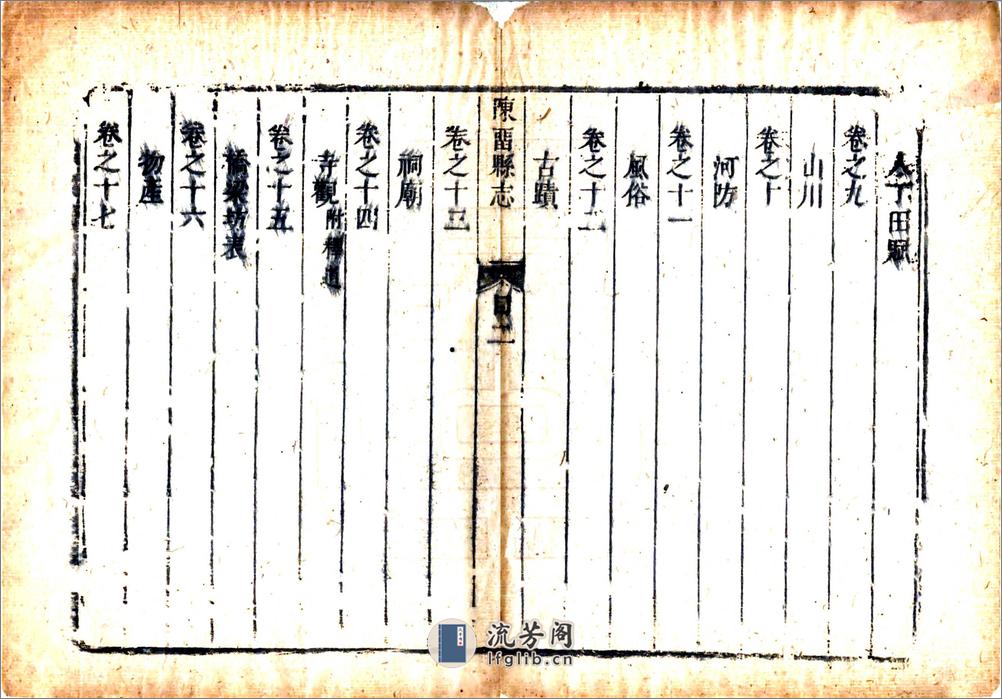 人丁田賦
卷之九
山川
卷之十
河防
卷之十一
風俗
卷之十二
古蹟
陳留縣志
目二
卷之十三
祠廟
卷之十四
寺觀附釋道
卷之十五
橋梁坊表
卷之十六
物產
卷之十七
流芳阁
lfglib.cn